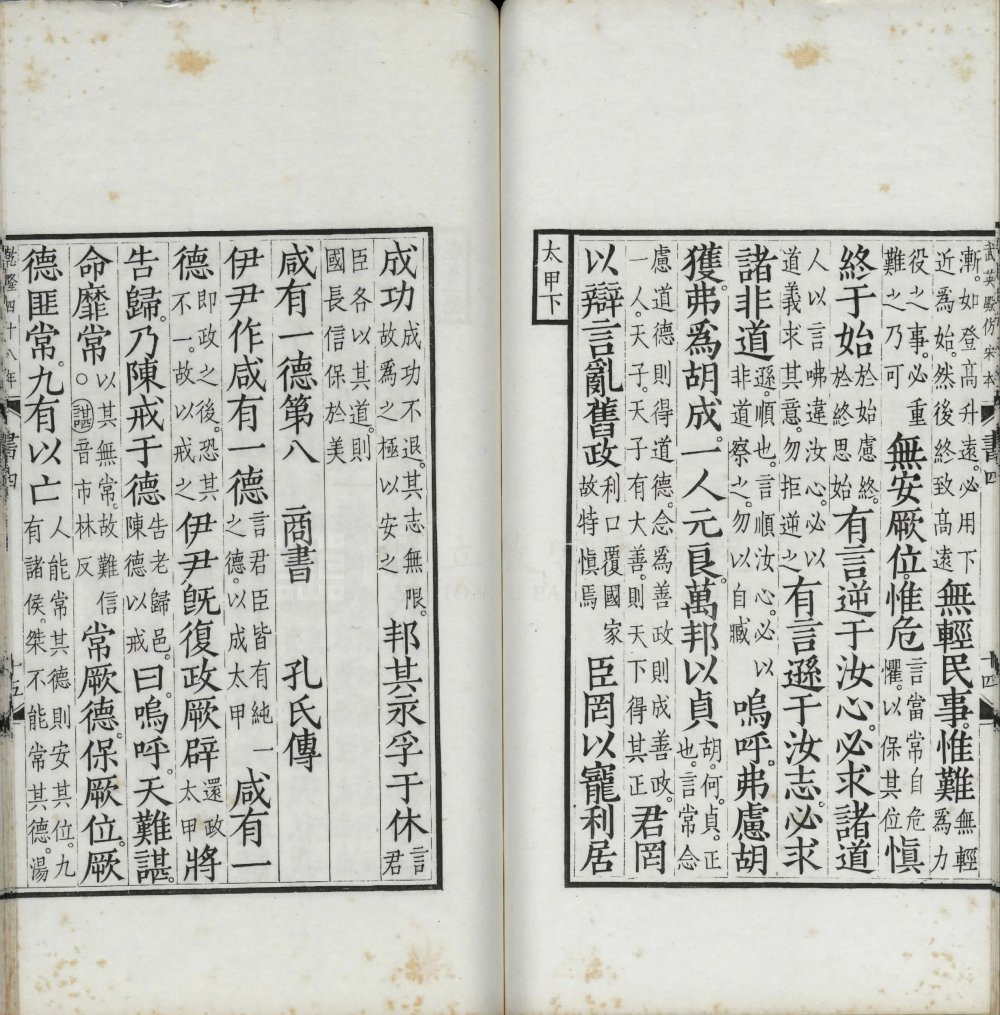 武英殿仿宋本 書四 十四
漸。如登高升遠。必用下近爲始。然後終致高遠無輕民事。惟難無輕爲力
役之事。必重難之乃可無安厥位。惟危言當常自危懼。以保其位愼
終于始於始慮終。於終思始有言逆于汝心。必求諸道
人以言咈違汝心。必以道義求其意。勿拒逆之有言遜于汝志。必求
諸非道遜。順也。言順汝心。必以非道察之。勿以自臧嗚呼。弗慮胡
獲。弗爲胡成。一人元良。萬邦以貞胡。何。貞。正也。言常念
慮道德則得道德。念爲善政則成善政。一人。天子。天子有大善。則天下得其正君罔
以辯言亂舊政利口覆國家故特愼焉臣罔以寵利居
太甲下
成功成功不退。其志無限。故爲之極以安之邦其永孚于休言君
臣各以其道。則國長信保於美
咸有一德第八 商書 孔氏傳
伊尹作咸有一德言君臣皆有純一之德。以成太甲咸有一
德即政之後。恐其不一。故以戒之伊尹旣復政厥辟還政太甲將
告歸。乃陳戒于德告老歸邑。陳德以戒曰。嗚呼。天難諶。
命靡常。○以其無常。故難信諶音市林反常厥德。保厥位。厥
德匪常。九有以亡人能常其德則安其位。九有諸侯。桀不能常其德。湯
乾隆四十八年 書四 十五